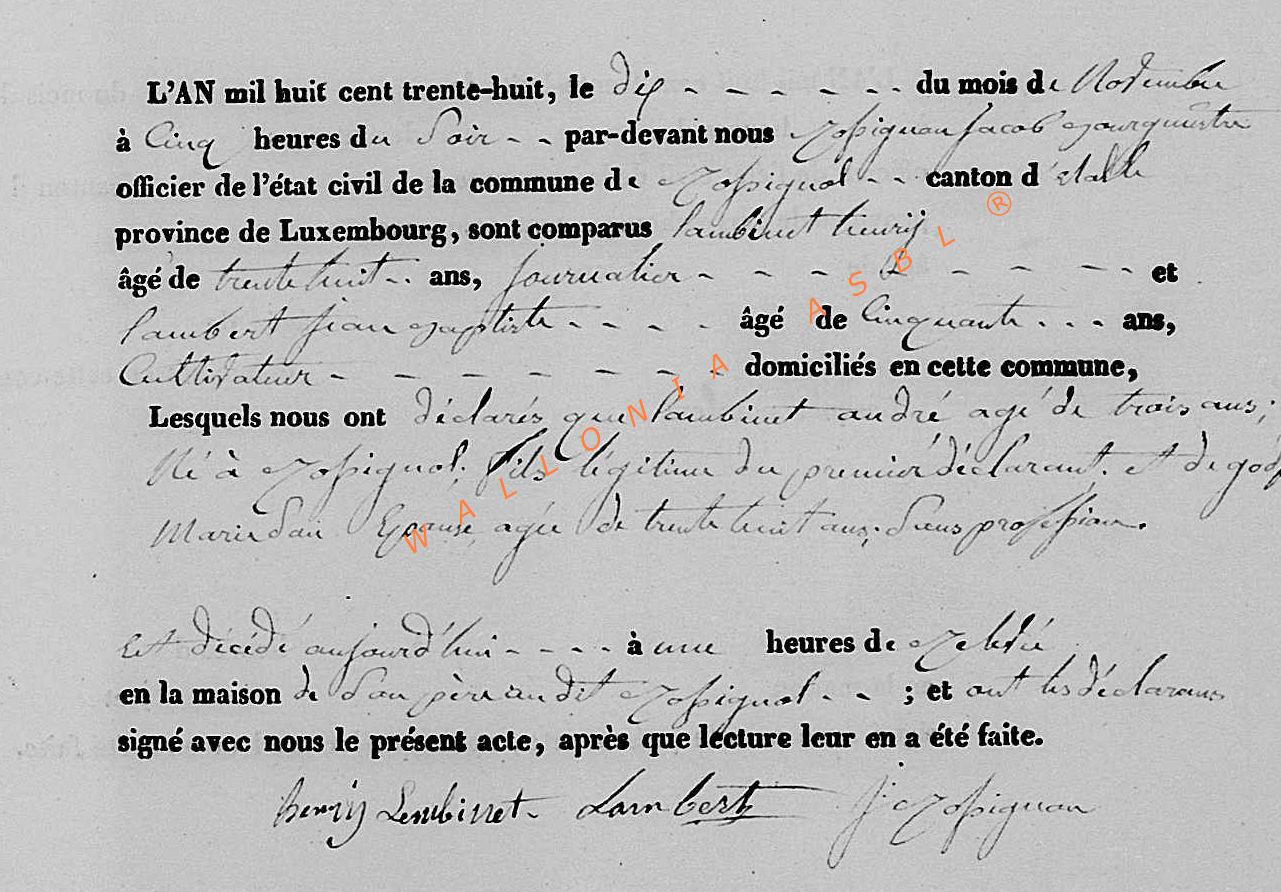 L'AN mil huit cent trente-huit, le dix - - - - - - du mois de Novembre
à Cinq heures du Soir - - par-devant nous Rossignon Jacob Bourguestre
officier de l'état civil de la commune de Rossignol - - canton d'étalle
province de Luxembourg, sont comparus lambinet henrij
âgé de trente huit - . ans, journalier - - - - - - - - et
lambert jean Baptiste - - - - âgé de Cinquante . . . ans,
Cultivateur - - - - - - - domiciliés en cette commune,
Lesquels nous ont déclarés que lambinet andré agé de trois ans;
Né à Rossignol. fils légitime du premier déclarant. et de
Marie Son Epouse agée de trente huit ans. Sans profession.
Est décédé aujourd'hui - - - - à une heures de Relevée
en la maison de Son père au dit Rossignol - - ; et ont les déclarans
signé avec nous le présent acte, après que lecture leur en a été faite.
Henrij Lembinet - Lambert J. Rossignon
WALLONIA ASBL ®